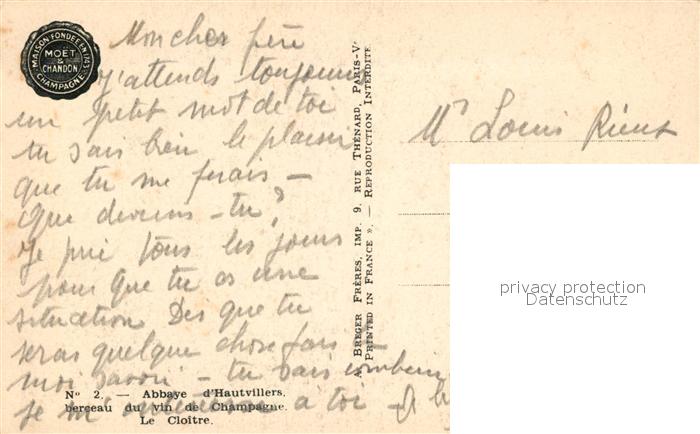 MAISON FONDÉE EN 1743
MOËT
&
CHANDON
CHAMPAGNE
Mon cher père
J'attends toujours
un petit mot de toi
tu sais bien le plaisir
que tu me ferais —
Que deviens-tu?
Je prie tous les jours
pour que tu as une
situation Des que tu
seras quelque chose fais
moi savoir — tu sais combien
je m' a toi —
No 2. — Abbaye d'Hautvillers,
berceau du vin de Champagne.
Le Cloître.
A. BREGER FRÈRES, IMP. 9, RUE THÉNARD, PARIS-V
« PRINTED IN FRANCE ». — REPRODUCTION INTERDITE.
Mr Louis
privacy protection
Datenschutz